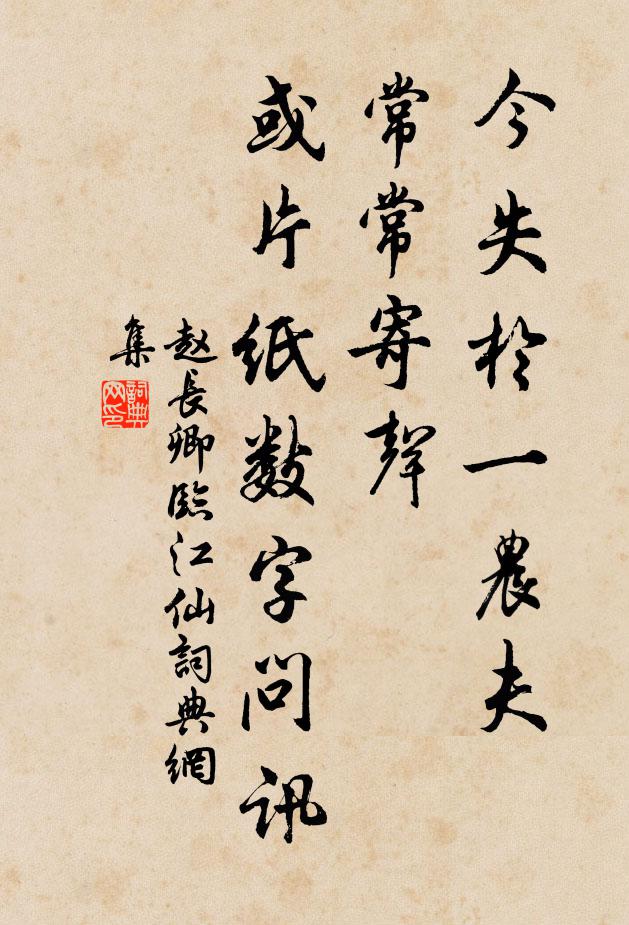 今失於一農夫
常常寄聲
或片紙数字問訊
赵長卿臨江仙詞典網
集
詞典网印